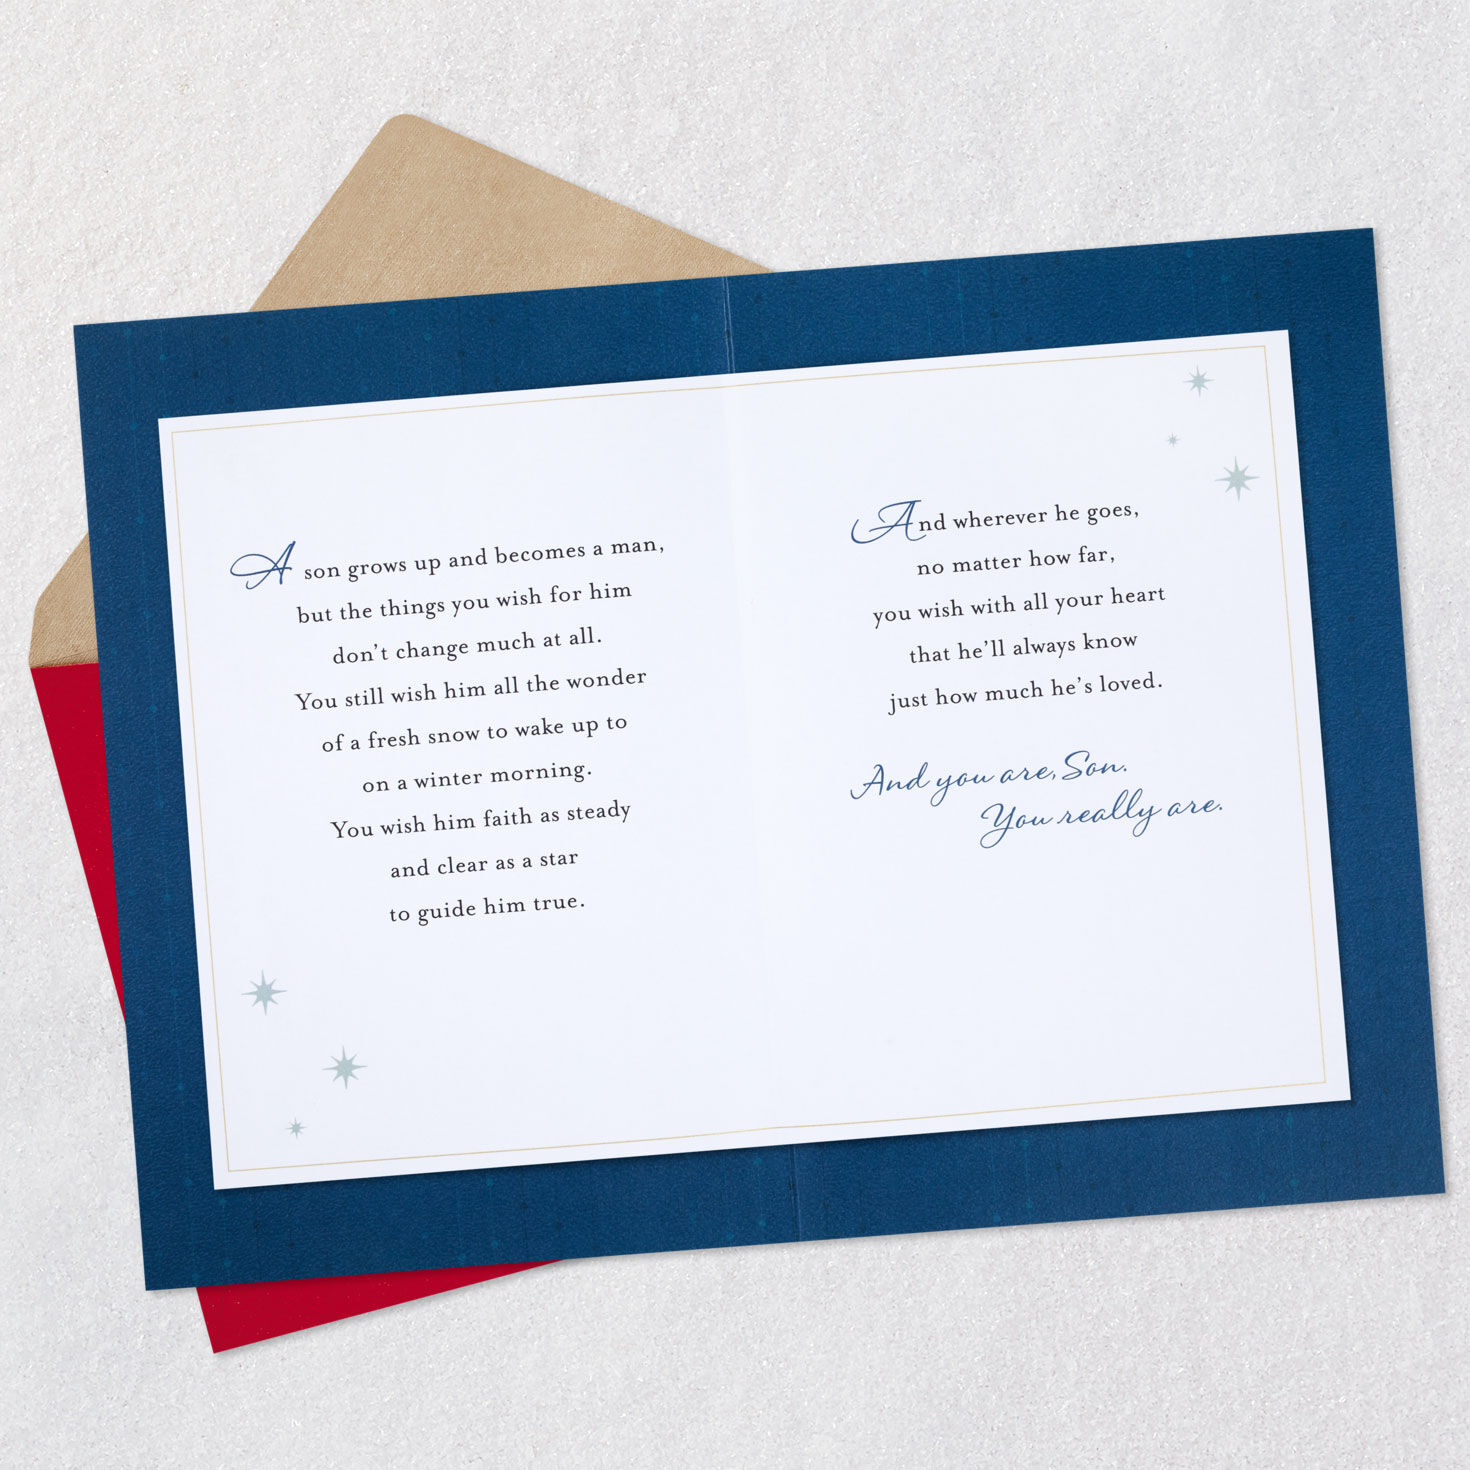 A son grows up and becomes a man,
but the things you wish for him
don't change much at all.
You still wish him all the wonder
of a fresh snow to wake up to
on a winter morning.
You wish him faith as steady
and clear as a star
to guide him true.
And wherever he goes,
no matter how far,
you wish with all your heart
that he'll always know
just how much he's loved.
And you are, Son.
You really are.